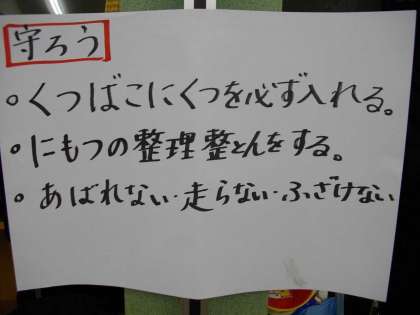 守ろう
・くつばこにくつを必ず入れる。
・にもつの整理整とんをする。
・あばれない・走らない・ふざけない